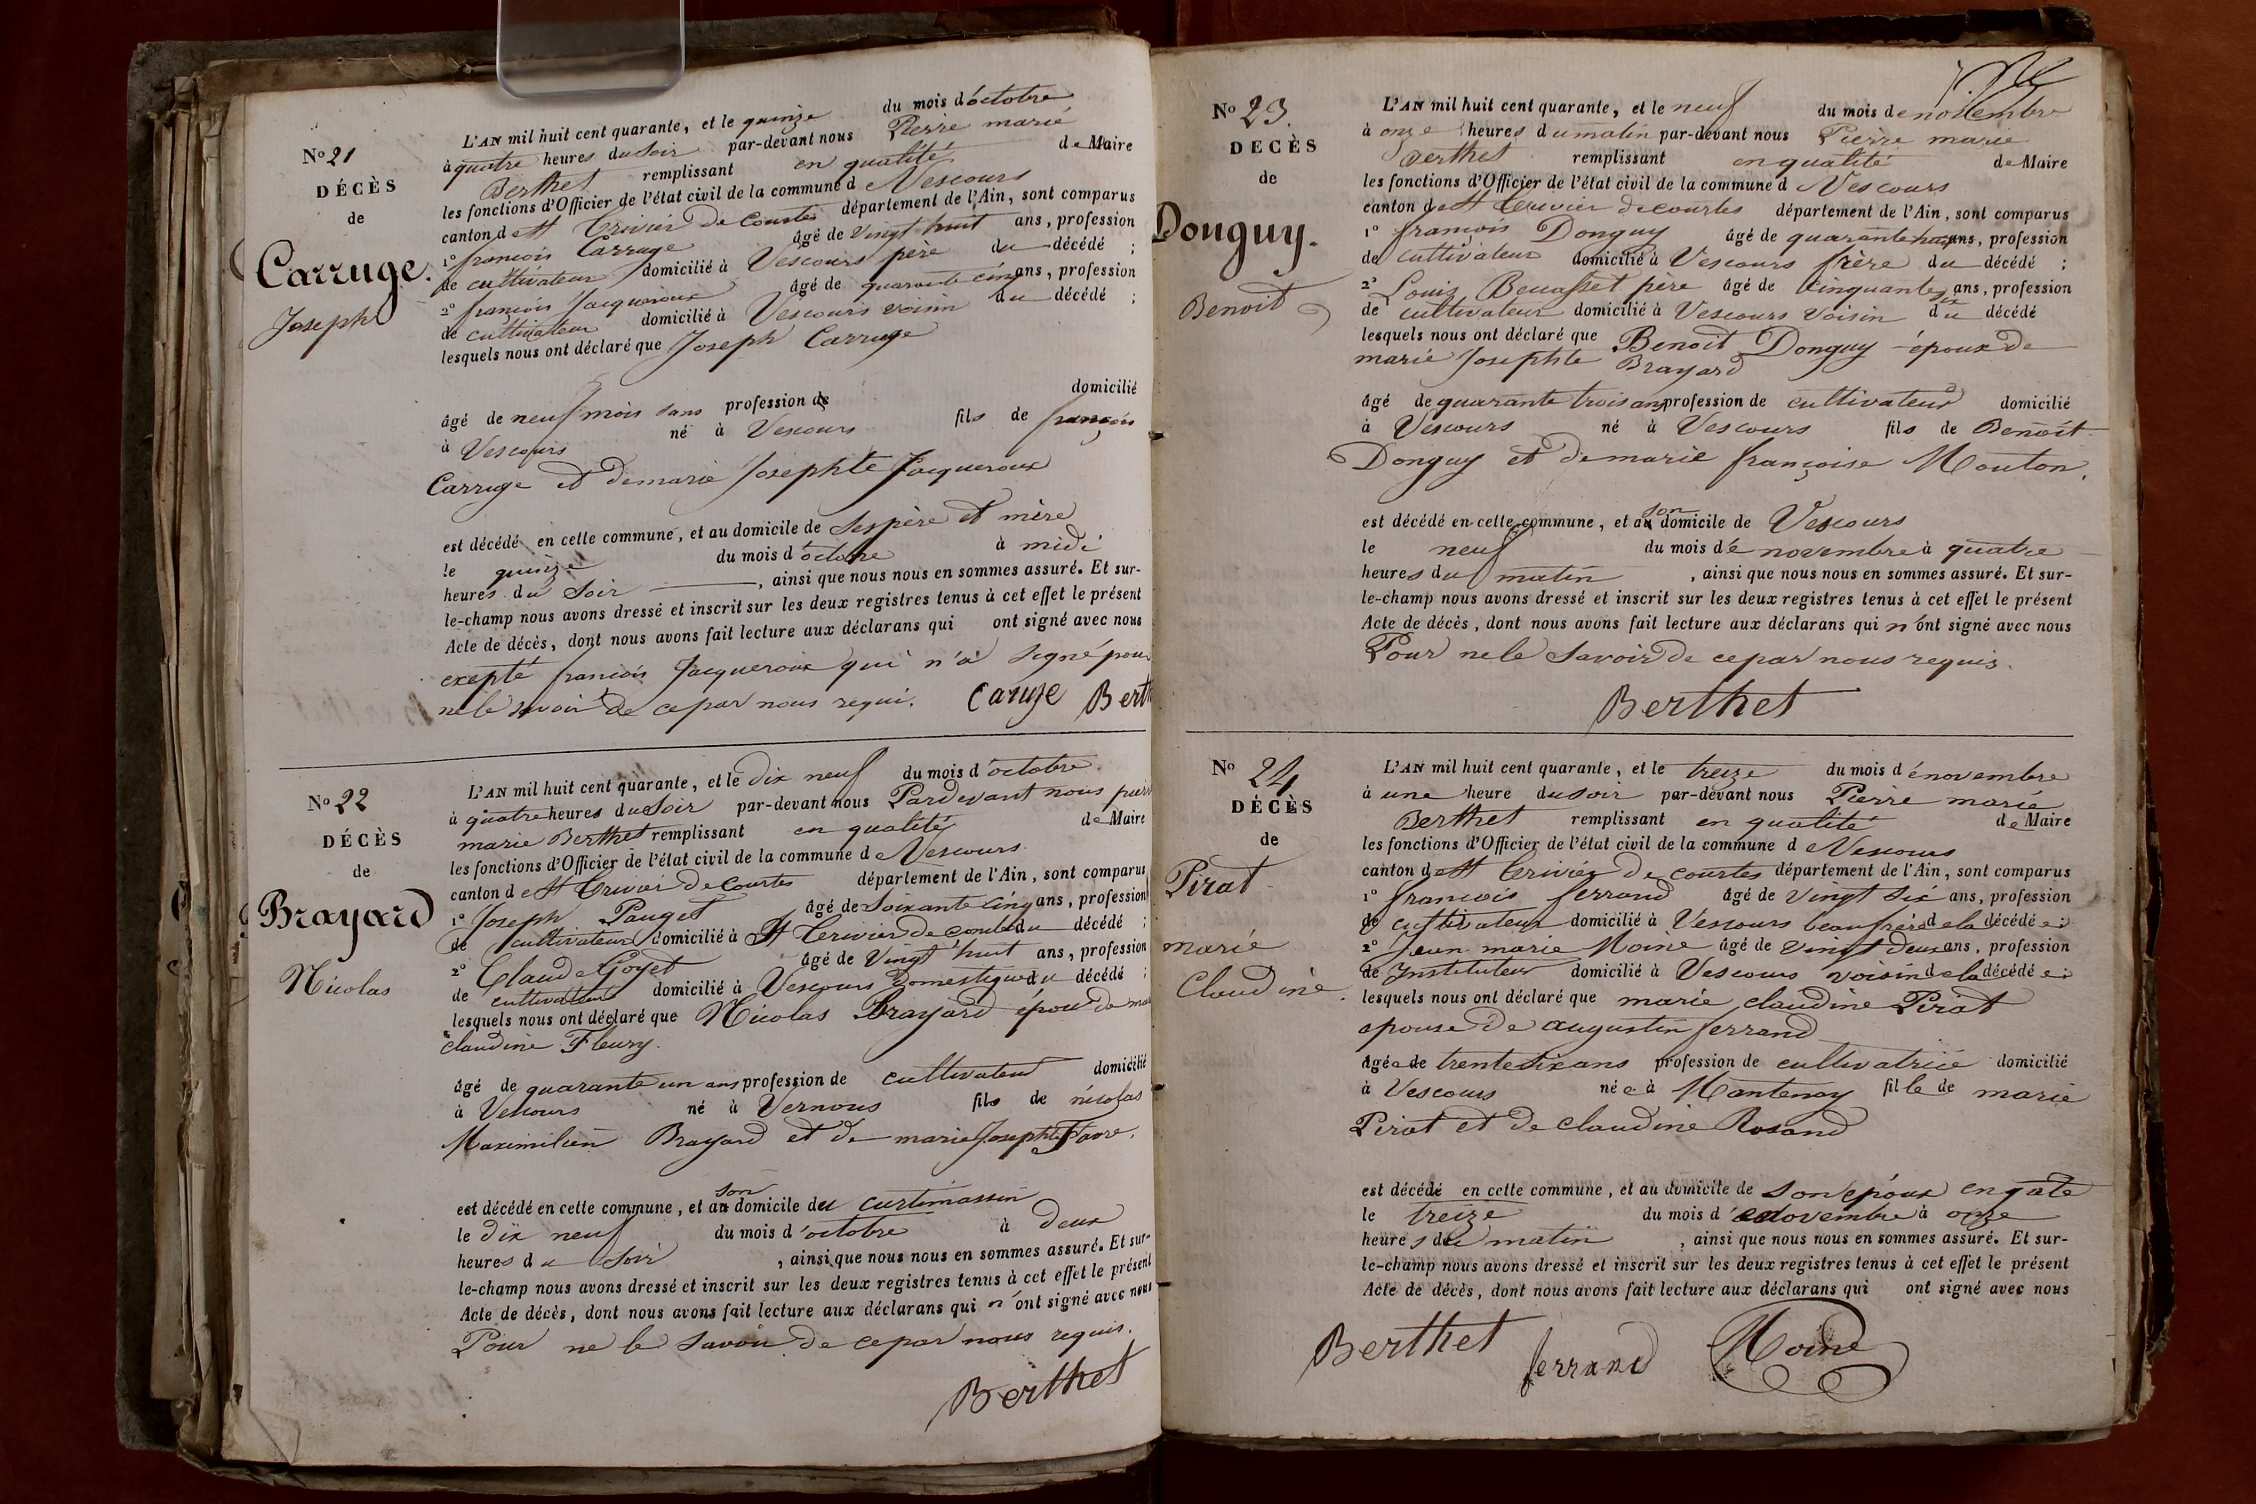 No 21
DÉCÈS
de
Carruge.
Joseph
L'AN mil huit cent quarante, et le quinze du mois d'octobre
à quatre heures du soir par-devant nous Pierre marié
Berthet remplissant en qualité de Maire
les fonctions d'Officier de l'état civil de la commune de Vescours
canton de St Trivier De Courtes département de l'Ain, sont comparus
1o francois Carruge âgé de vingt huit ans, profession
de cultivateur domicilié à Vescours père du décédé ;
2o françois Jacqueroux âgé de quarante cinq ans, profession
de cultivateur domicilié à Vescours voisin du décédé ;
lesquels nous ont déclaré que Joseph Carruge
âgé de neuf mois sans profession de domicilié
à Vescours né à Vescours fils de françois
Carruge et de marie Josephte Jacqueroux
est décédé en cette commune, et au domicile de Ses père et mère
le quinze du mois d'octobre à midi
heures du Soir , ainsi que nous nous en sommes assuré. Et sur-
le-champ nous avons dressé et inscrit sur les deux registres tenus à cet effet le présent
Acte de décès, dont nous avons fait lecture aux déclarans qui ont signé avec nous
excepté francois Jacqueroux qui n'a signé pour
ne le savoir De ce par nous requi. Caruge Berth
No 22
DÉCÈS
de
Brayard
Nicolas
L'AN mil huit cent quarante, et le dix neuf du mois d'octobre
à quatre heures du Soir par-devant nous Pardevant nous pierre
marie Berthet remplissant en qualité de Maire
les fonctions d'Officier de l'état civil de la commune de Vescours
canton de St Trivier De Courtes département de l'Ain, sont comparus
1o Joseph Pauget âgé de Soixante cinq ans, profession
de cultivateur domicilié à St Trivier De Courtes du décédé ;
2o Claude Goyet âgé de Vingt huit ans, profession
de cultivateur domicilié à Vescours Domestique du décédé ;
lesquels nous ont déclaré que Nicolas Brayard époux de marie
claudine Fleury.
âgé de quarante un ans profession de cultivateur domicilié
à Vescours né à Vernoux fils de nicolas
Maximilien Brayard et de marie Josephte Favre.
est décédé en cette commune, et au son domicile du curtimassin
le dix neuf du mois d'octobre à deux
heures du Soir , ainsi que nous nous en sommes assuré. Et sur-
le-champ nous avons dressé et inscrit sur les deux registres tenus à cet effet le présent
Acte de décès, dont nous avons fait lecture aux déclarans qui n'ont signé avec nous
Pour ne le savoir De ce par nous requis.
Berthet
No 23.
DÉCÈS
de
Donguy.
Benoit
L'AN mil huit cent quarante, et le neuf du mois de novembre
à onze heures du matin par-devant nous Pierre marie
Berthet remplissant en qualité de Maire
les fonctions d'Officier de l'état civil de la commune de Vescours
canton de St Trivier de courtes département de l'Ain, sont comparus
1o francois Donguy âgé de quarante ans, profession
de cultivateur domicilié à Vescours frère du décédé ;
2o Louis père âgé de cinquante six ans, profession
de cultivateur domicilié à Vescours Voisin du décédé
lesquels nous ont déclaré que Benoit Donguy époux De
marie Josephte Brayard
âgé de quarante trois ans profession de cultivateur domicilié
à Vescours né à Vescours fils de Benoit
Donguy et de marie françoise Mouton.
est décédé en cette commune, et au son domicile de Vescours
le neuf du mois de novembre à quatre
heures du matin , ainsi que nous nous en sommes assuré. Et sur-
le-champ nous avons dressé et inscrit sur les deux registres tenus à cet effet le présent
Acte de décès, dont nous avons fait lecture aux déclarans qui n'ont signé avec nous
Pour ne le Savoir De ce par nous requis.
Berthet
No 24
DÉCÈS
de
Pirat
marie
Claudine.
L'AN mil huit cent quarante, et le treize du mois de novembre
à une heure du soir par-devant nous Pierre marie
Berthet remplissant en qualité de Maire
les fonctions d'Officier de l'état civil de la commune de Vescours
canton de St Trivier De courtes département de l'Ain, sont comparus
1o francois ferrand âgé de vingt six ans, profession
de cultivateur domicilié à Vescours beaufrère de la décédée ;
2o Jean marie Moine âgé de vingt deux ans, profession
de Instituteur domicilié à Vescours voisin de la décédée ;
lesquels nous ont déclaré que marie claudine Pirat
epouse De augustin ferrand
âgée de trente six ans profession de cultivatrice domicilié
à Vescours née à Mantenay fille de marie
Pirat et de claudine Rosand
est décédé en cette commune, et au domicile de Son époux
le treize du mois de novembre à onze
heures du matin , ainsi que nous nous en sommes assuré. Et sur-
le-champ nous avons dressé et inscrit sur les deux registres tenus à cet effet le présent
Acte de décès, dont nous avons fait lecture aux déclarans qui ont signé avec nous
Berthet ferrand Moine